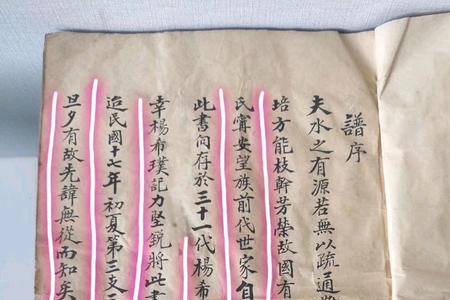 譜序
夫水之有源若無以疏通將
培方能枝幹芳榮故國有
氏甯安望族前代世家自
此書向存於三十一代楊希
幸楊布璞記力堅銳將此書
迨民國十七年初夏第三支三
旦夕有故先諱無從而知矣